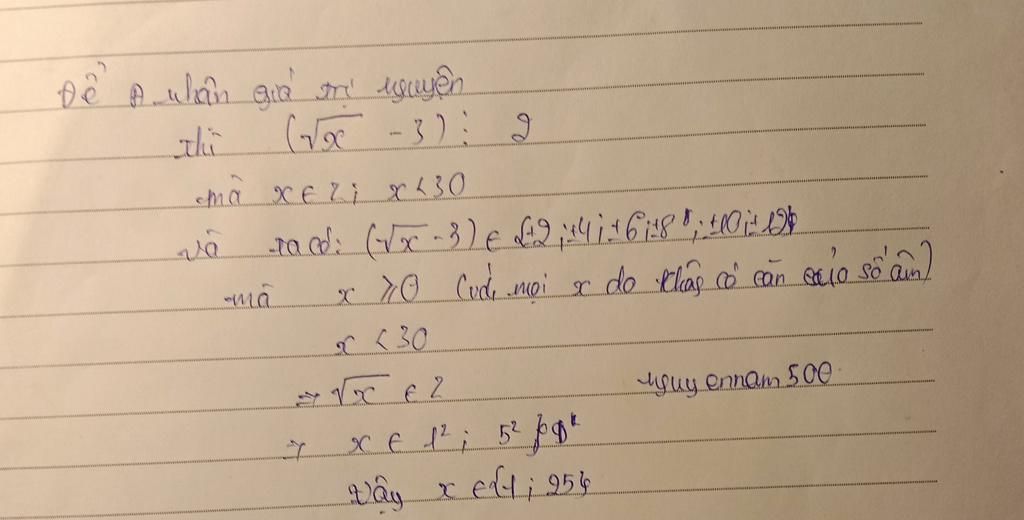 Để A nhận giá trị nguyên
thì (√x - 3) ⋮ 2
mà x ∈ Z; x < 30
và ta có: (√x - 3) ∈ {±2; ±4; ±6; ±8; ±10; ±12}
mà x ≥ 0 (với mọi x do không có căn của số âm)
x < 30
⇒ √x ∈ Z nguyennam500
⇒ x ∈ 1²; 5²
Vậy x ∈ {1; 25}